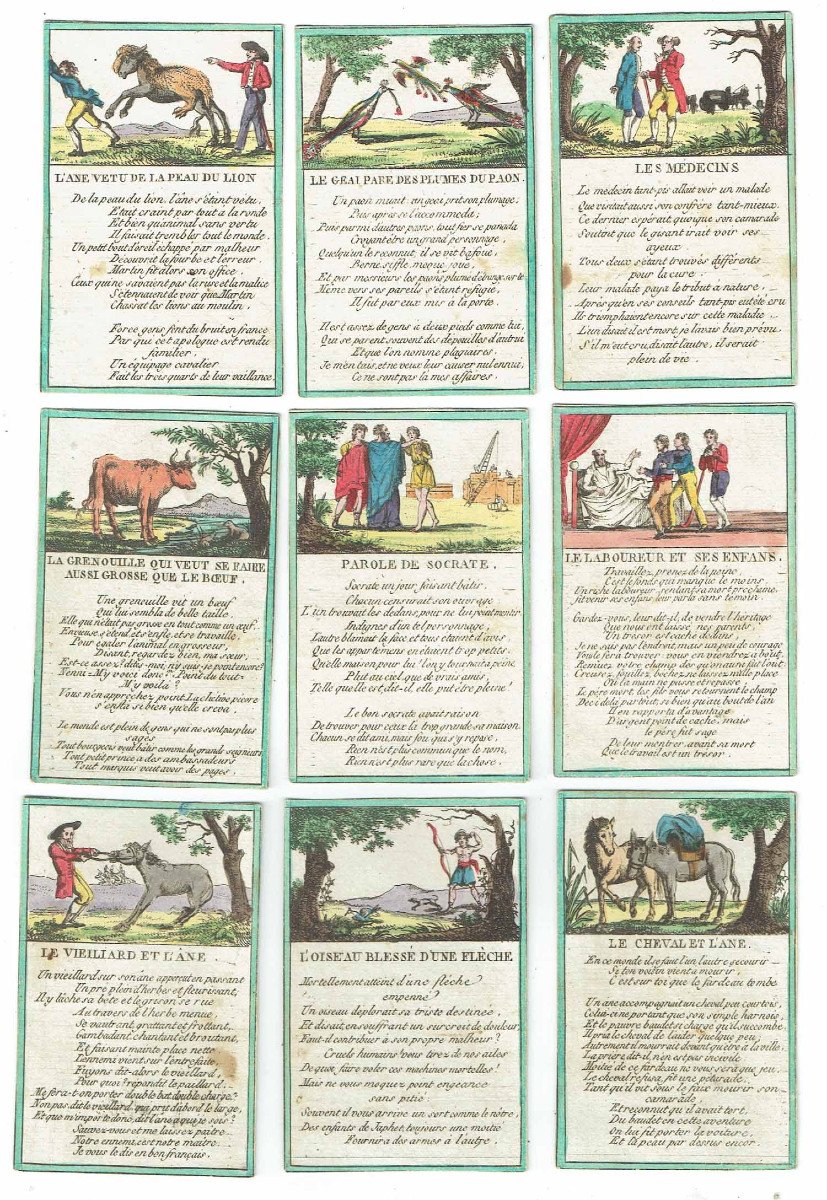 L'ANE VETU DE LA PEAU DU LION
De la peau du lion, l'âne s'étant vetu,
Etait craint par tout à la ronde
Et bien qu'animal sans vertu
Il faisait trembler tout le monde
Un petit bout d'oreil échappé par malheur
Découvrit la fourbe et l'erreur
Martin fit alors son office,
Ceux qui ne savaient pas la ruse et la malice
S'étonnaient de voir que Martin
Chassat les lions au moulin,
Force gens font du bruit en france
Par qui cet apologue est rendu
familier.
Un équipage cavalier
Fait les trois quarts de leur vaillance.
LE GEAI PARE DES PLUMES DU PAON.
Un paon muait, un geai prit son plumage.
Puis après se l'accommoda;
Puis parmi d'autres paons, tout fier se panada
Croyant être un grand personnage,
Quelqu'un le reconnut, il se vit bafoué,
Berné, sifflé, moqué, joué,
Et par messieurs les paons plumé d'étrange sorte
Même vers ses pareils s'étant refugié,
Il fut par eux mis à la porte.
Il est assez de gens à deux pieds comme lui,
Qui se parent souvent des dépouilles d'autrui
Et que l'on nomme plagiaires.
Je m'en tais, et ne veux leur causer nul ennui,
Ce ne sont pas la mes affaires.
LES MEDECINS
Le medecin tant-pis allait voir un malade
Que visitait aussi son confrère tant-mieux.
Ce dernier espérait quoique son camarade
Soutint que le gisant irait voir ses
ayeux
Tous deux s'étant trouvés différents
pour la cure.
Leur malade paya le tribut à nature,
Après qu'en ses conseils tant-pis eut été cru
Ils triomphaient encore sur cette maladie.
L'un disait il est mort, je l'avais bien prévu.
S'il m'eut cru, disait l'autre, il serait
plein de vie.
LA GRENOUILLE QUI VEUT SE FAIRE
AUSSI GROSSE QUE LE BŒUF.
Une grenouille vit un bœuf
Qui lui sembla de belle taille,
Elle qui n'était pas grosse en tout comme un œuf
Envieuse, s'étend, et s'enfle, et se travaille,
Pour égaler l'animal en grosseur,
Disant, regardez bien, ma sœur,
Est-ce assez? dites-moi, n'y suis-je point encore?
Nenni. M'y voici donc? Point du tout.
M'y voilà?
Vous n'en approchez point. La chetive pécore
s'enfla si bien qu'elle creva.
Le monde est plein de gens qui ne sont pas plus
sages
Tout bourgeois veut batir comme les grands seigneurs
Tout petit prince a des ambassadeurs
Tout marquis veut avoir des pages.
PAROLE DE SOCRATE.
Socrate un jour faisant bâtir.
Chacun censurait son ouvrage
L'un trouvait les dedans, pour ne lui point mentir,
Indignes d'un tel personnage,
L'autre blamait la face et tous etaient d'avis,
Que les appartemens en étaient trop petits.
Quelle maison pour lui! l'on y tournait a peine.
Plut au ciel que de vrais amis,
Telle quelle est, dit-il, elle put être pleine!
Le bon socrate avait raison
De trouver pour ceux la trop grande sa maison.
Chacun se dit ami, mais fou qui s'y repose,
Rien n'est plus commun que le nom,
Rien n'est plus rare que la chose.
LE LABOUREUR ET SES ENFANS.
Travaillez, prenez de la peine,
C'est le fonds qui manque le moins
Un riche laboureur, sentant sa mort prochaine,
fit venir ses enfans, leur parla sans témoin.
Gardez-vous, leur dit-il, de vendre l'heritage
Que nous ont laissé nos parents.
Un trésor est caché dedans,
Je ne sais pas l'endroit, mais un peu de courage
Vous le fera trouver, vous en viendrez à bout.
Remuez votre champ dès qu'on aura fait l'out:
Creusez, fouillez, bêchez ne laissez nulle place
Où la main ne passe et repasse.
Le père mort, les fils vous retournent le champ
Deci dela partout, si bien qu'au bout de l'an
Il en rapporta d'avantage
D'argent point de caché, mais
le père fut sage
De leur montrer, avant sa mort
Que le travail est un trésor.
LE VIEILIARD ET L'ÂNE.
Un vieillard sur son âne apperçut en passant
Un pré plein d'herbes et fleurissant,
Il y lâche sa bête et le grison se rue
Au travers de l'herbe menue,
Se vautrant, grattant et frottant,
Gambadant, chantant et broutant,
Et faisant mainte place nette
L'ennemi vient sur l'entrefaite
Fuyons dit-alors le vieillard,
Pour quoi? répondit le paillard.
Me fera-t-on porter double bat, double charge?
Non pas, dit le vieillard, qui prit d'abord le large,
Et que m'importe donc, dit l'âne à qui je sois?
Sauvez-vous et me laissez paître.
Notre ennemi, c'est notre maître.
Je vous le dis en bon français.
L'OISEAU BLESSÉ D'UNE FLÈCHE
Mortellement atteint d'une flèche
empenné
Un oiseau déplorait sa triste destinée,
Et disait, en souffrant un surcroit de douleur,
Faut-il contribuer à son propre malheur?
Cruels humains! vous tirez de nos ailes
De quoi faire voler ces machines mortelles!
Mais ne vous moquez point engeance
sans pitié:
Souvent il vous arrive un sort comme le nôtre,
Des enfants de Japhet, toujours une moitié
Fournira des armes à l'autre.
LE CHEVAL ET L'ANE.
En ce monde il se faut l'un l'autre secourir
Se ton voisin vient à mourir,
C'est sur toi que le fardeau tombe
Un ane accompagnait un cheval peu courtois,
Celui-ci ne portant que son simple harnois,
Et le pauvre baudet si chargé qu'il succombe.
Il pria le cheval de l'aider quelque peu,
Autrement il mourrait devant qu'être à la ville.
La prière dit-il, n'en est pas incivile
Moitié de ce fardeau ne vous sera que jeu.
Le cheval refusa, fit une pétarade,
Tant qu'il vit sous le faix mourir son
camarade,
Et reconnut qu'il avait tort,
Du baudet en cette aventure
On lui fit porter la voiture,
Et la peau par dessus encor.